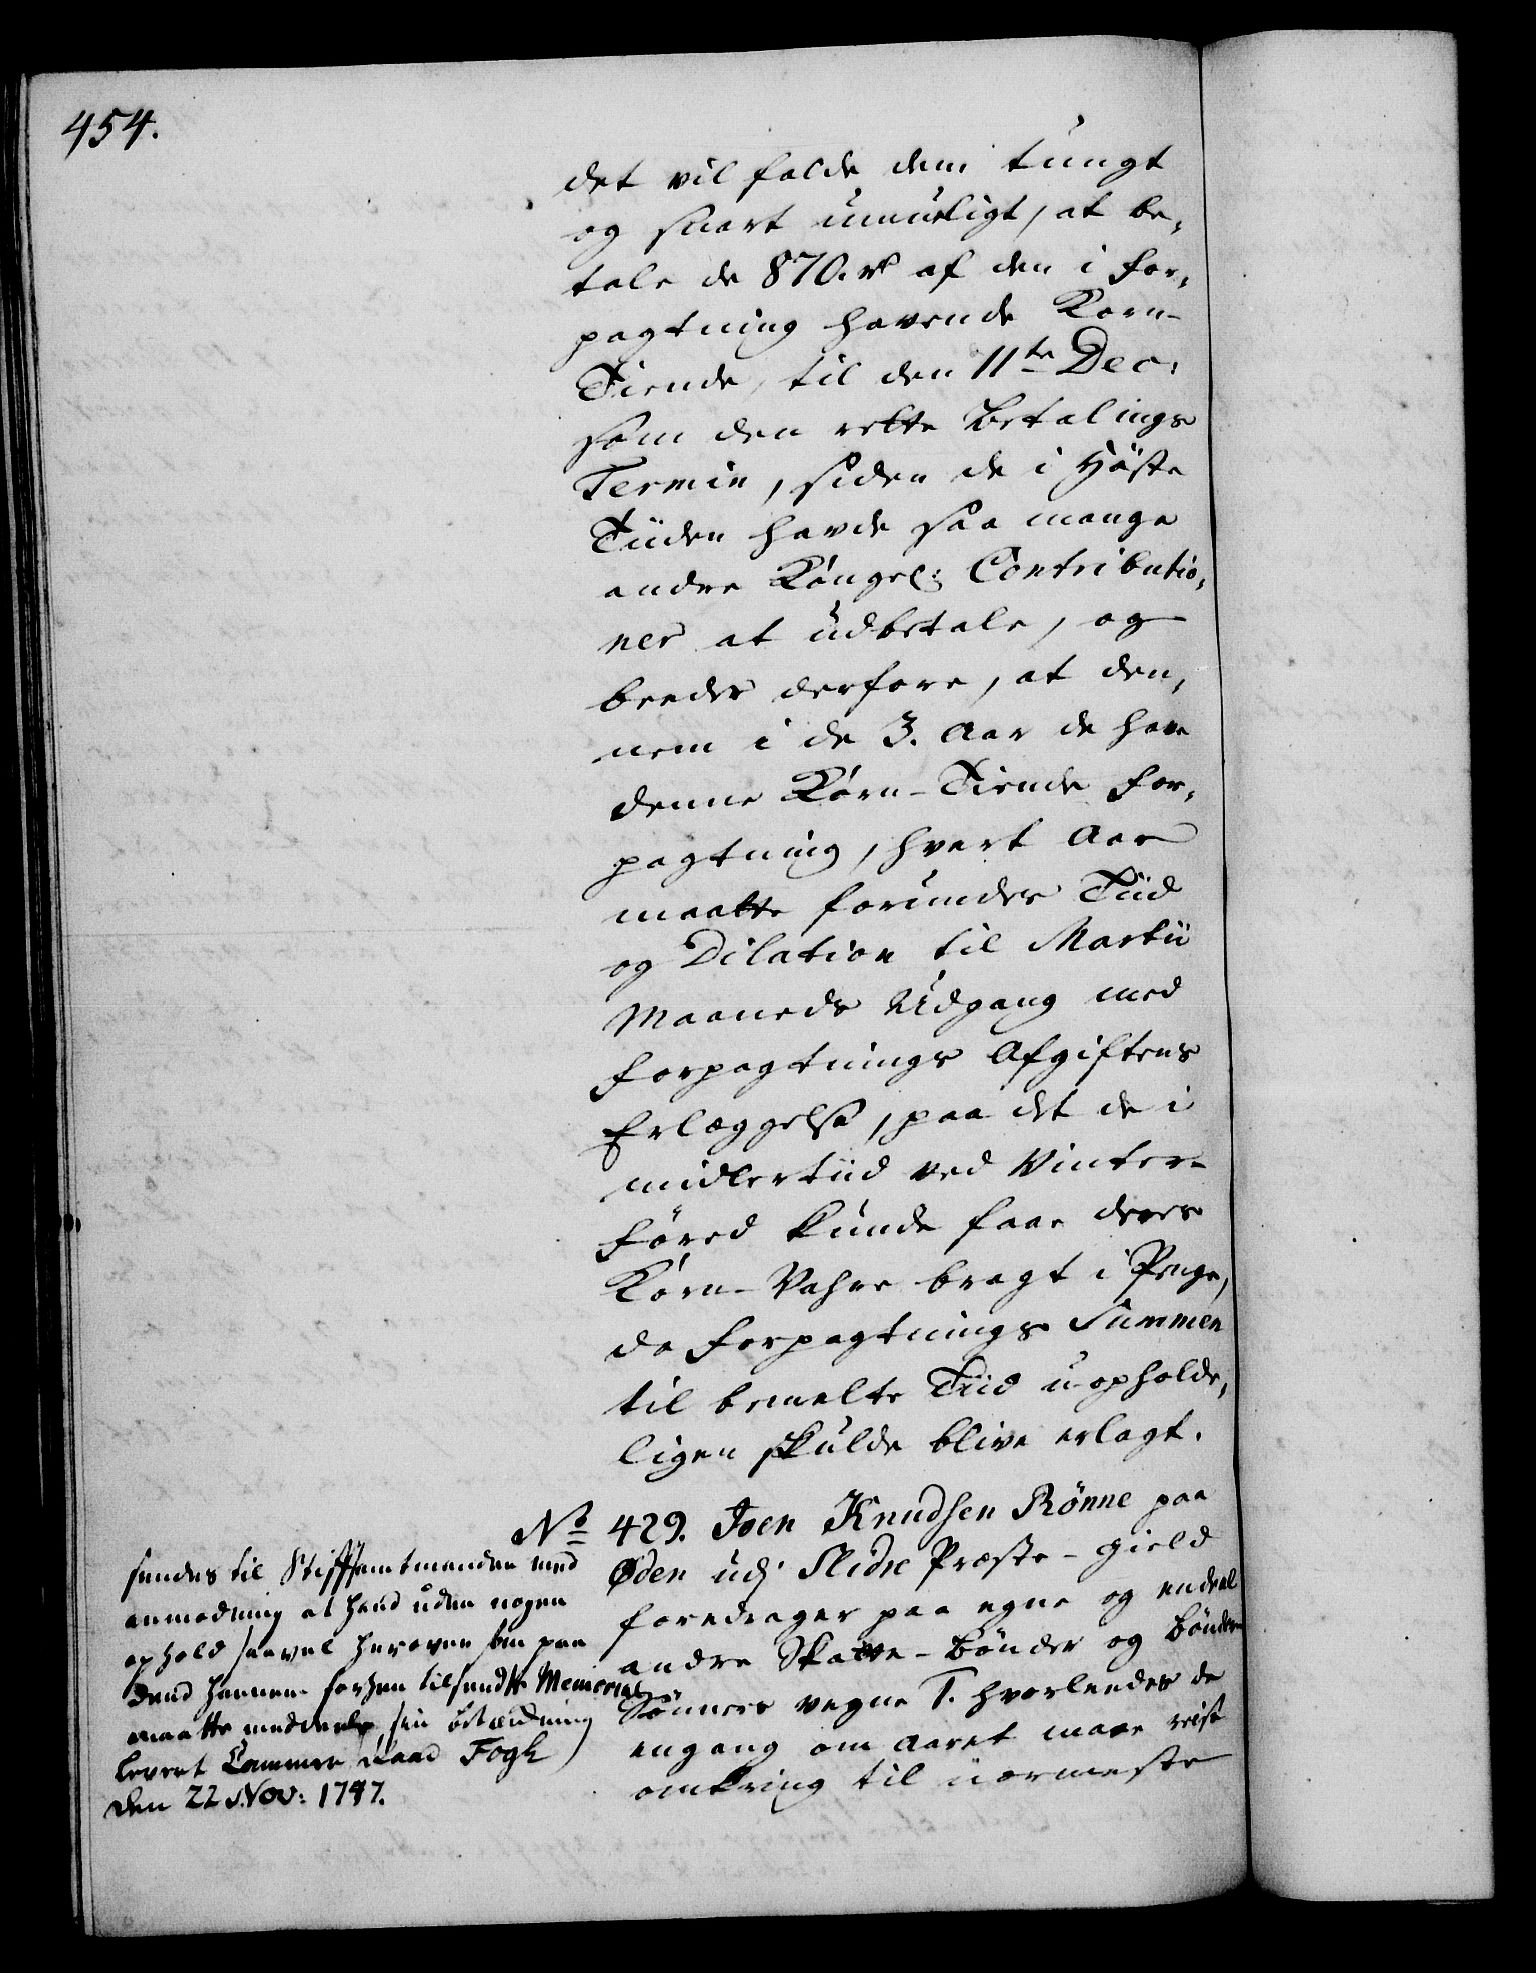 454.
det vil falde dem tungt
og snart umueligt, at be,
tale de 870. rd af den i for,
pagtning havende Korn-
Tiende, til den 11te Dec:
som den rette Betalings
Termin, siden de i Høste
Tiiden havde saa mange
andre Kongel: Contributio,
ner at udbetale, og
beeder derfore, at den,
nem i de 3. Aar de have
denne Korn-Tiende for,
pagtning, hvert Aar
maatte forundes Tiid
og Dilation til Martii
Maaneds Udgang med
forpagtnings Afgiftens
Erlæggelse, paa det de i
midlertiid ved Vinter-
føred kunde faae deres
Korn-Vahre bragt i Penge,
da forpagtnings Summen
til bemelte Tiid uopholde,
ligen skulde blive erlagt.
No 429. Joen Knudsen Rønne paa
Øden udj Slidre Præste-gield
foredrager paa egne og endeel
andre Skatte-Bønder og Bønder
Sønners vegne T. hvorleedes de
engang om Aaret maae reise
omkring til nærmeste
sendes til Stifftamtmanden med
anmodning at hand uden nogen
ophold saavel herover som paa
dend hannem forhen tilsendte Memorial
maatte meddeele sin betænkning
leveret Cammer Raad Fogh
den 22 Nov: 1747.